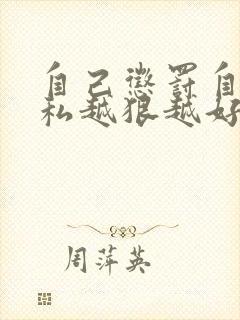 自己惩罚自
私越狠越好
周萍英